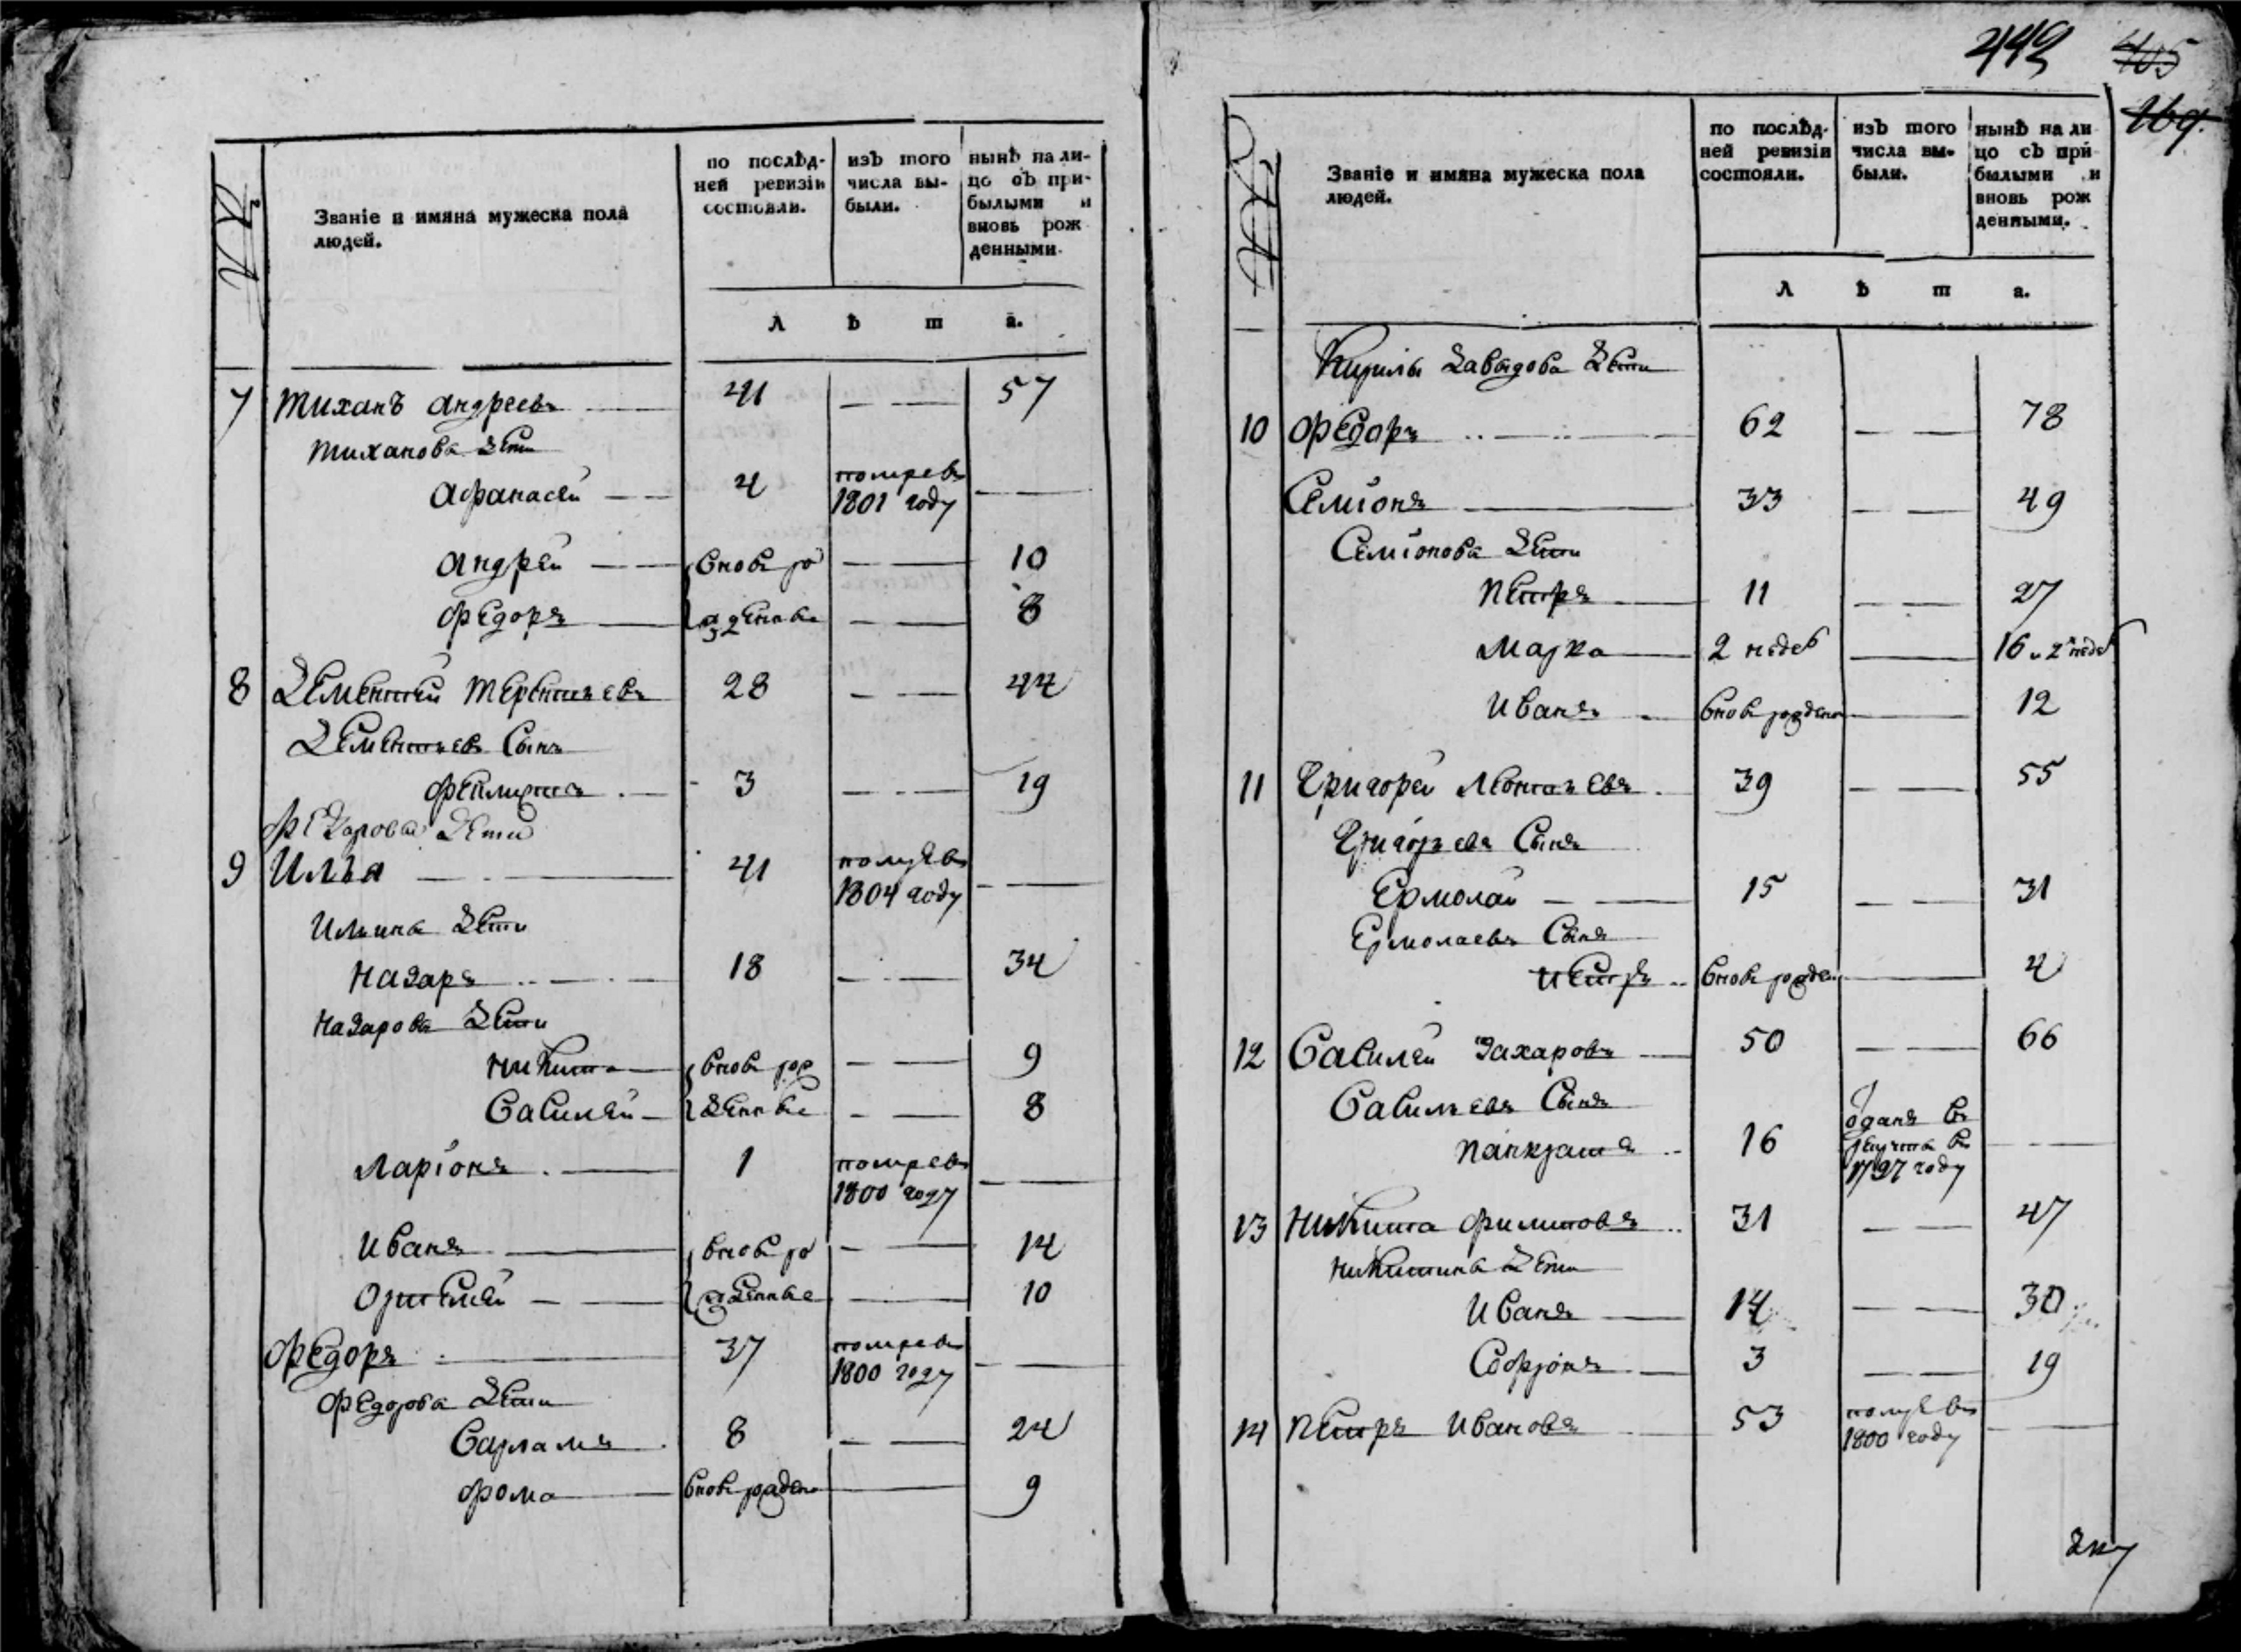 Званіе и имяна мужеска пола
людей.
по послѣд-
ней ревизіи
состояли.
изъ того
числа вы-
были.
нынѣ на ли-
цо съ при-
былыми и
вновь рож
денными.
Л ѣ т а.
7 Тиханъ Андреевъ 41 — — 57
Тиханова дети
Афанасей — — 4 помревъ 1801 году —
Андрей — — вновь ро — — 10
Федоръ — жденные — — 8
8 Дементей Терентьевъ 28 — — 44
Дементьевъ сынъ
3 — — 19
Федорова дети
9 Илья — 41 помревъ 1804 году —
Ильина дети
Назаръ — 18 — — 34
Назарова дети
Никита — вновь рож — — 9
Савилей — денные — — 8
Ларіонъ — 1 помревъ 1800 году —
Иванъ — вновь ро — — 14
Ортемей — — жденные — 10
Федоръ — 37 помревъ 1800 году —
Федорова дети
Варламъ 8 — — 24
Фома — вновь рожден — 9
442 405
169.
Званіе и имяна мужеска пола
людей.
по послѣд-
ней ревизіи
состояли.
изъ того
числа вы-
были.
нынѣ на ли
цо съ при
былыми и
вновь рож
денными.
Л ѣ т а.
Кирилы Давыдова дети
10 Федоръ — 62 — — 78
Семіонъ — 33 — — 49
Семіонова дети
Петръ — 11 — — 27
Марка — 2 недел — 16 и 2 недел
Иванъ — вновь рожден — 12
11 Григорей Леонтьевъ 39 — — 55
Григорьевъ сынъ
Ермолай — — 15 — — 31
Ермолаевъ сынъ
Петръ вновь рожден — 4
12 Савилей Захаровъ — 50 — — 66
Савильевъ сынъ
Панкратъ 16 оданъ в рекруты в 1797 году —
13 Никита Филиповъ 31 — — 47
Никитина дети
Иванъ — 14 — — 30
Софронъ — 3 — — 19
14 Петръ Ивановъ 53 помревъ 1800 году —